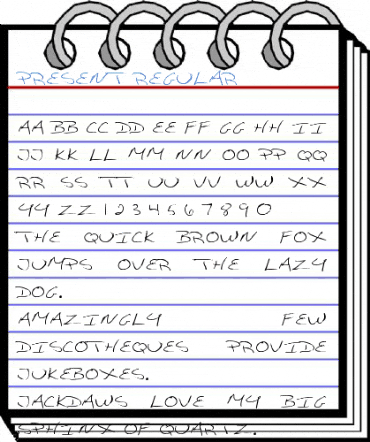 PRESENT REGULAR
AA BB CC DD EE FF GG HH II
JJ KK LL MM NN OO PP QQ
RR SS TT UU VV WW XX
YY ZZ 1 2 3 4 5 6 7 8 9 0
THE QUICK BROWN FOX
JUMPS OVER THE LAZY
DOG.
AMAZINGLY FEW
DISCOTHEQUES PROVIDE
JUKEBOXES.
JACKDAWS LOVE MY BIG
SPHINX OF QUARTZ.